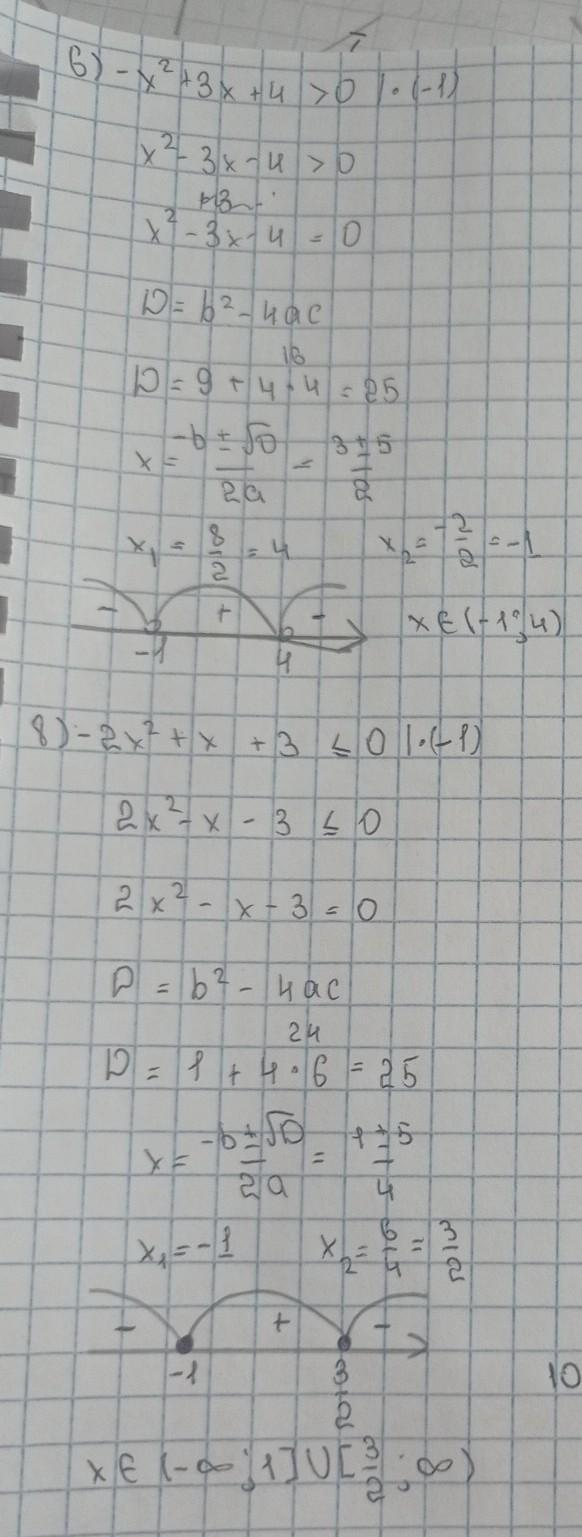 6) -x² + 3x + 4 > 0 | · (-1)
x² - 3x - 4 > 0
x² - 3x - 4 = 0
D = b² - 4ac
16
D = 9 + 4 · 4 = 25
x = (-b ± √D)/2a = (3 ± 5)/2
x₁ = 8/2 = 4 x₂ = -2/2 = -1
- + -
-1 4
x ∈ (-1; 4)
8) -2x² + x + 3 ≤ 0 | · (-1)
2x² - x - 3 ≤ 0
2x² - x - 3 = 0
D = b² - 4ac
24
D = 1 + 4 · 6 = 25
x = (-b ± √D)/2a = (1 ± 5)/4
x₁ = -1 x₂ = 6/4 = 3/2
- + -
-1 3/2
10
x ∈ (-∞; 1] ∪ [3/2; ∞)